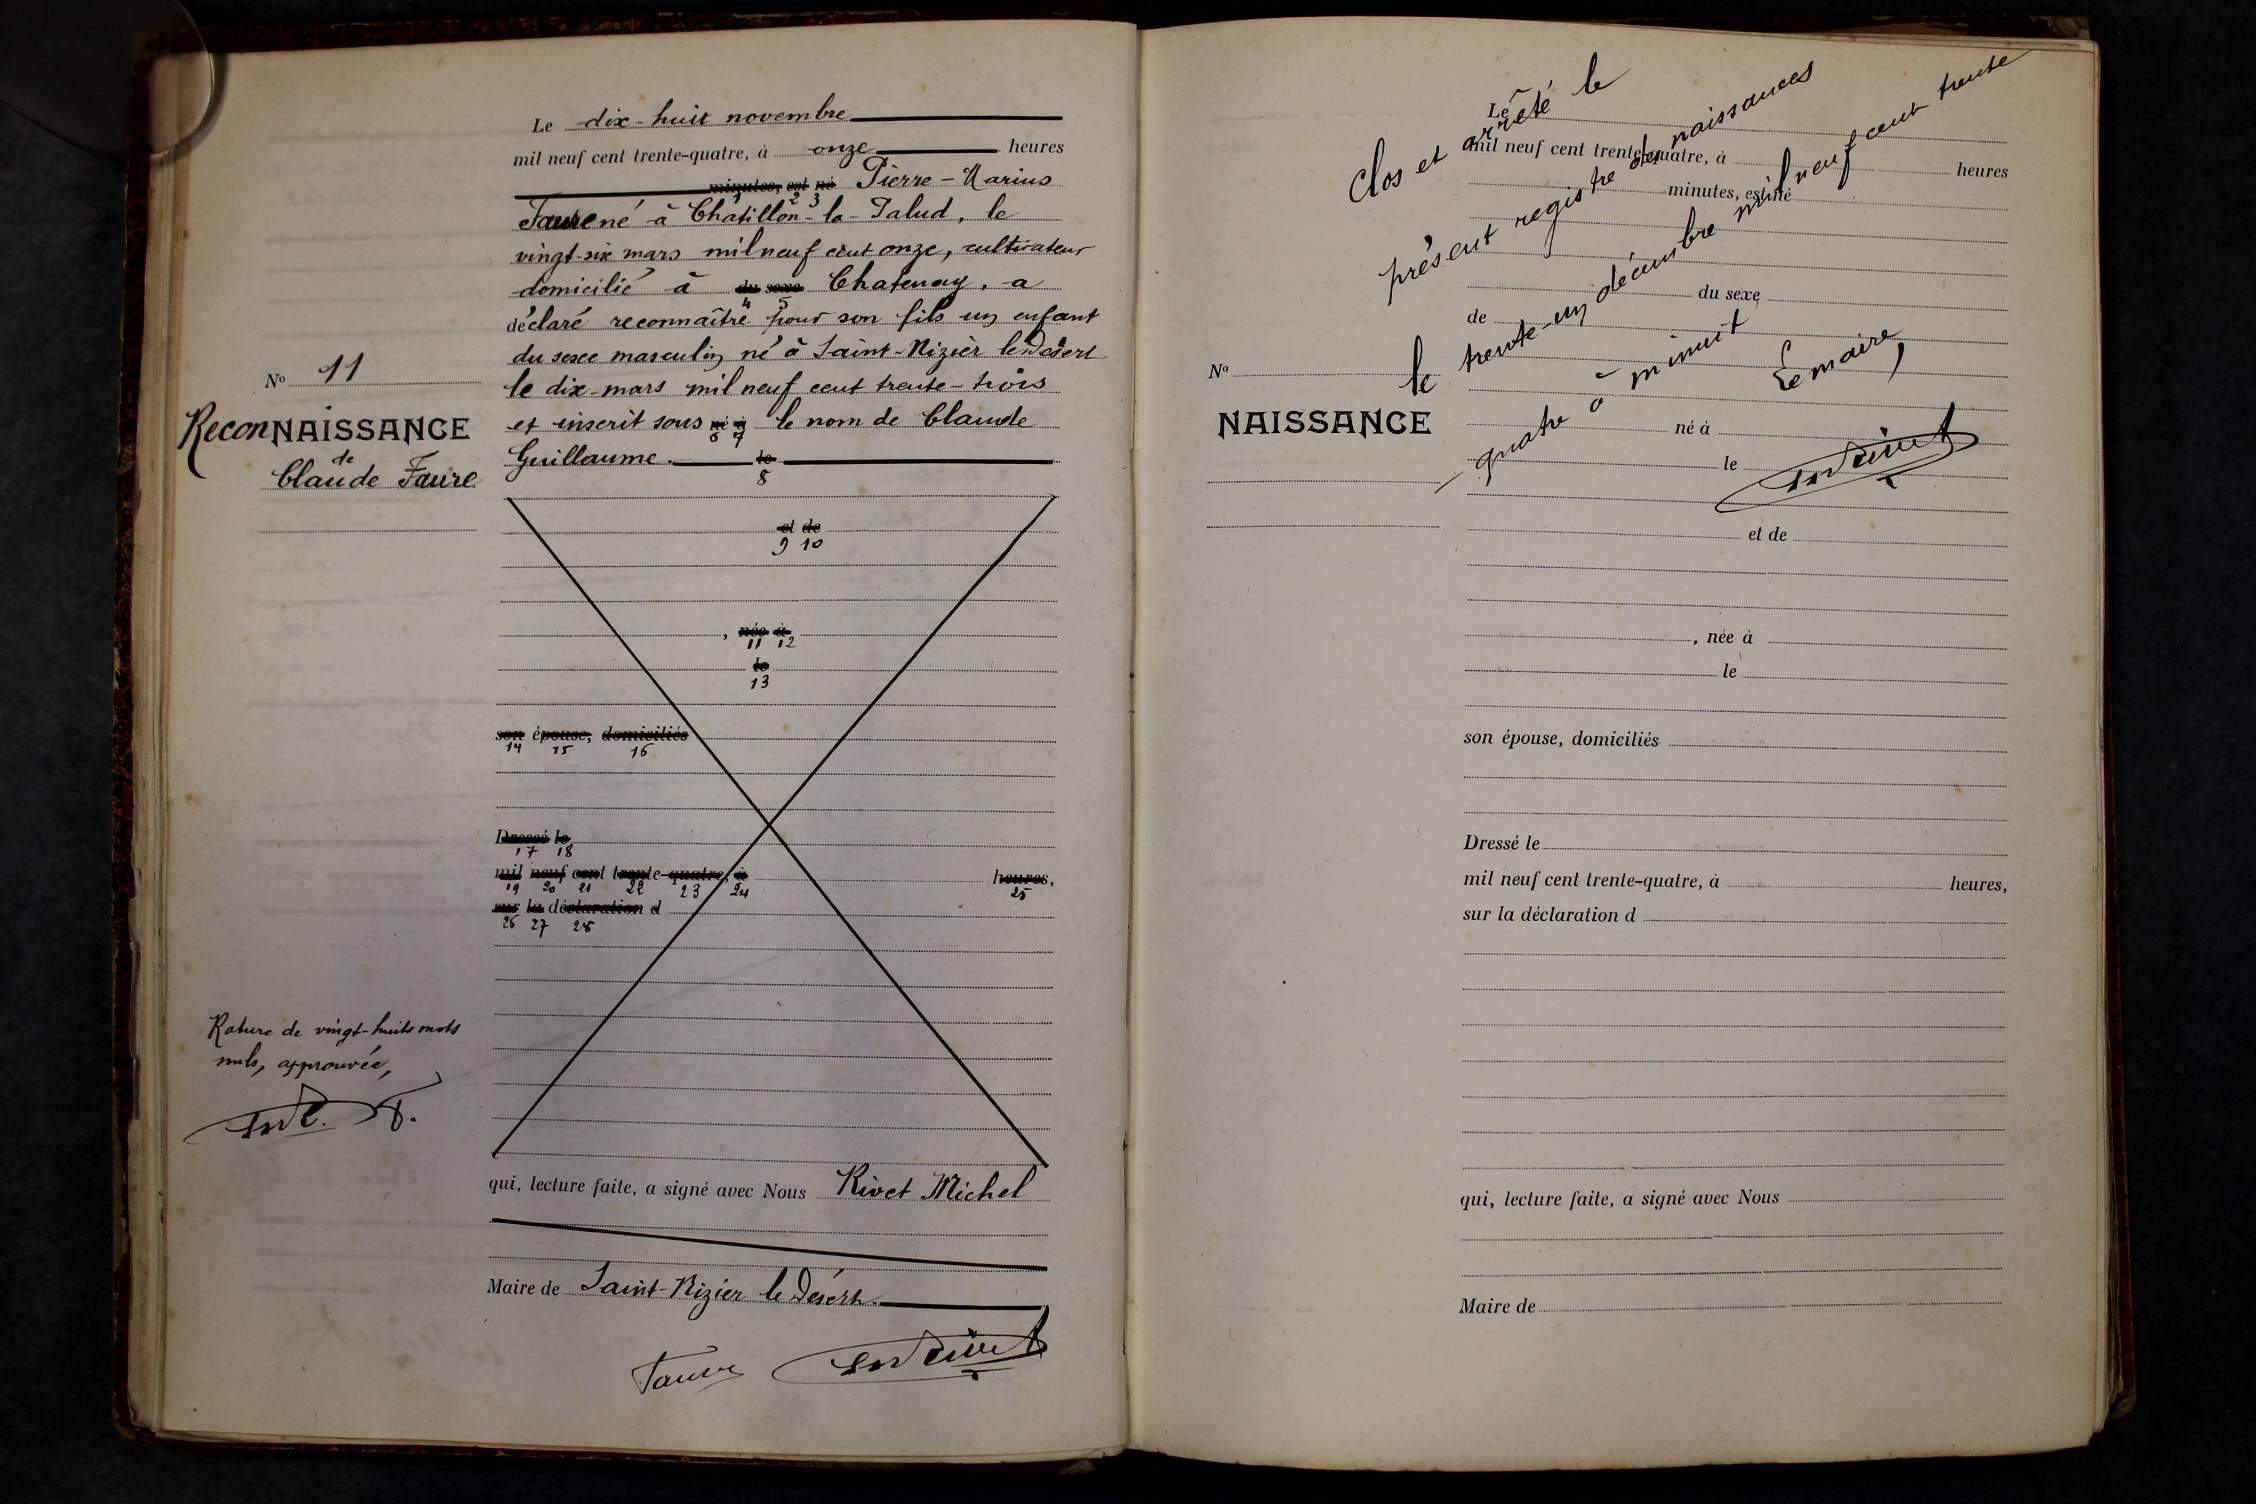 Le dix-huit novembre
mil neuf cent trente-quatre, à onze heures
minutes, est né Pierre-Marius
1 2 3
Faure né à Châtillon-la-Palud, le
vingt-six mars mil neuf cent onze, cultivateur
domicilié à du sexe Chatenay, a
4 5
déclaré reconnaître pour son fils un enfant
du sexe masculin né à Saint-Nizier le Désert
le dix mars mil neuf cent trente-trois
et inscrit sous né à le nom de Claude
6 7
Guillaume. le
8
et de
9 10
, née à
11 12
le
13
son épouse, domiciliés
14 15 16
Dressé le
17 18
mil neuf cent trente-quatre, à heures,
19 20 21 22 23 24 25
sur la déclaration d
26 27 28
qui, lecture faite, a signé avec Nous Rivet Michel
Maire de Saint-Nizier le Désert.
Faure
Nº 11
ReconNAISSANCE
de
Claude Faure
Rature de vingt-huits mots
nuls, approuvée,
F.
Clos et arrêté le
présent registre des naissances
le trente-un décembre mil neuf cent trente
quatre à minuit
Le maire,
Le
mil neuf cent trente-quatre, à heures
minutes, est né
du sexe
de
Nº
NAISSANCE
né à
le
et de
, née à
le
son épouse, domiciliés
Dressé le
mil neuf cent trente-quatre, à heures,
sur la déclaration d
qui, lecture faite, a signé avec Nous
Maire de